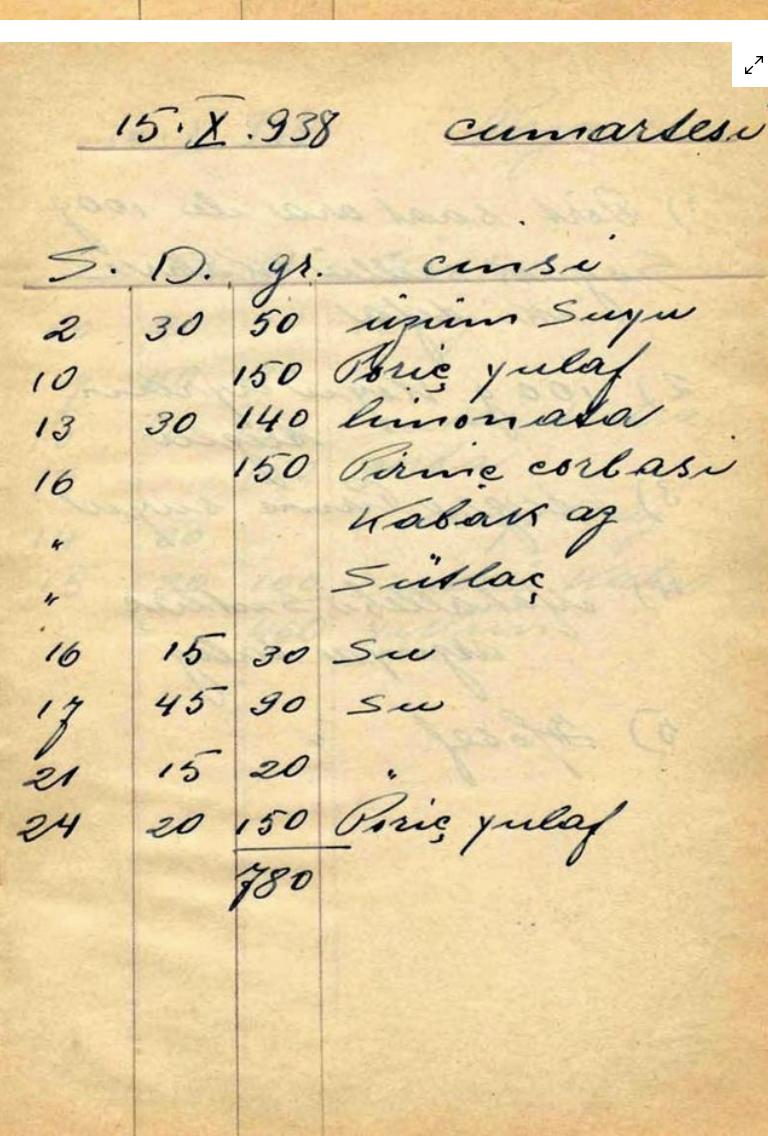 15.X.938 cumartesi
S. D. gr. cinsi
2 30 50 üzüm Suyu
10 150 Piriç yulaf
13 30 140 limonata
16 150 Pirinç corbasi
" Kabak az
" Sütlaç
16 15 30 Su
17 45 90 Su
21 15 20 "
24 20 150 Piriç yulaf
780